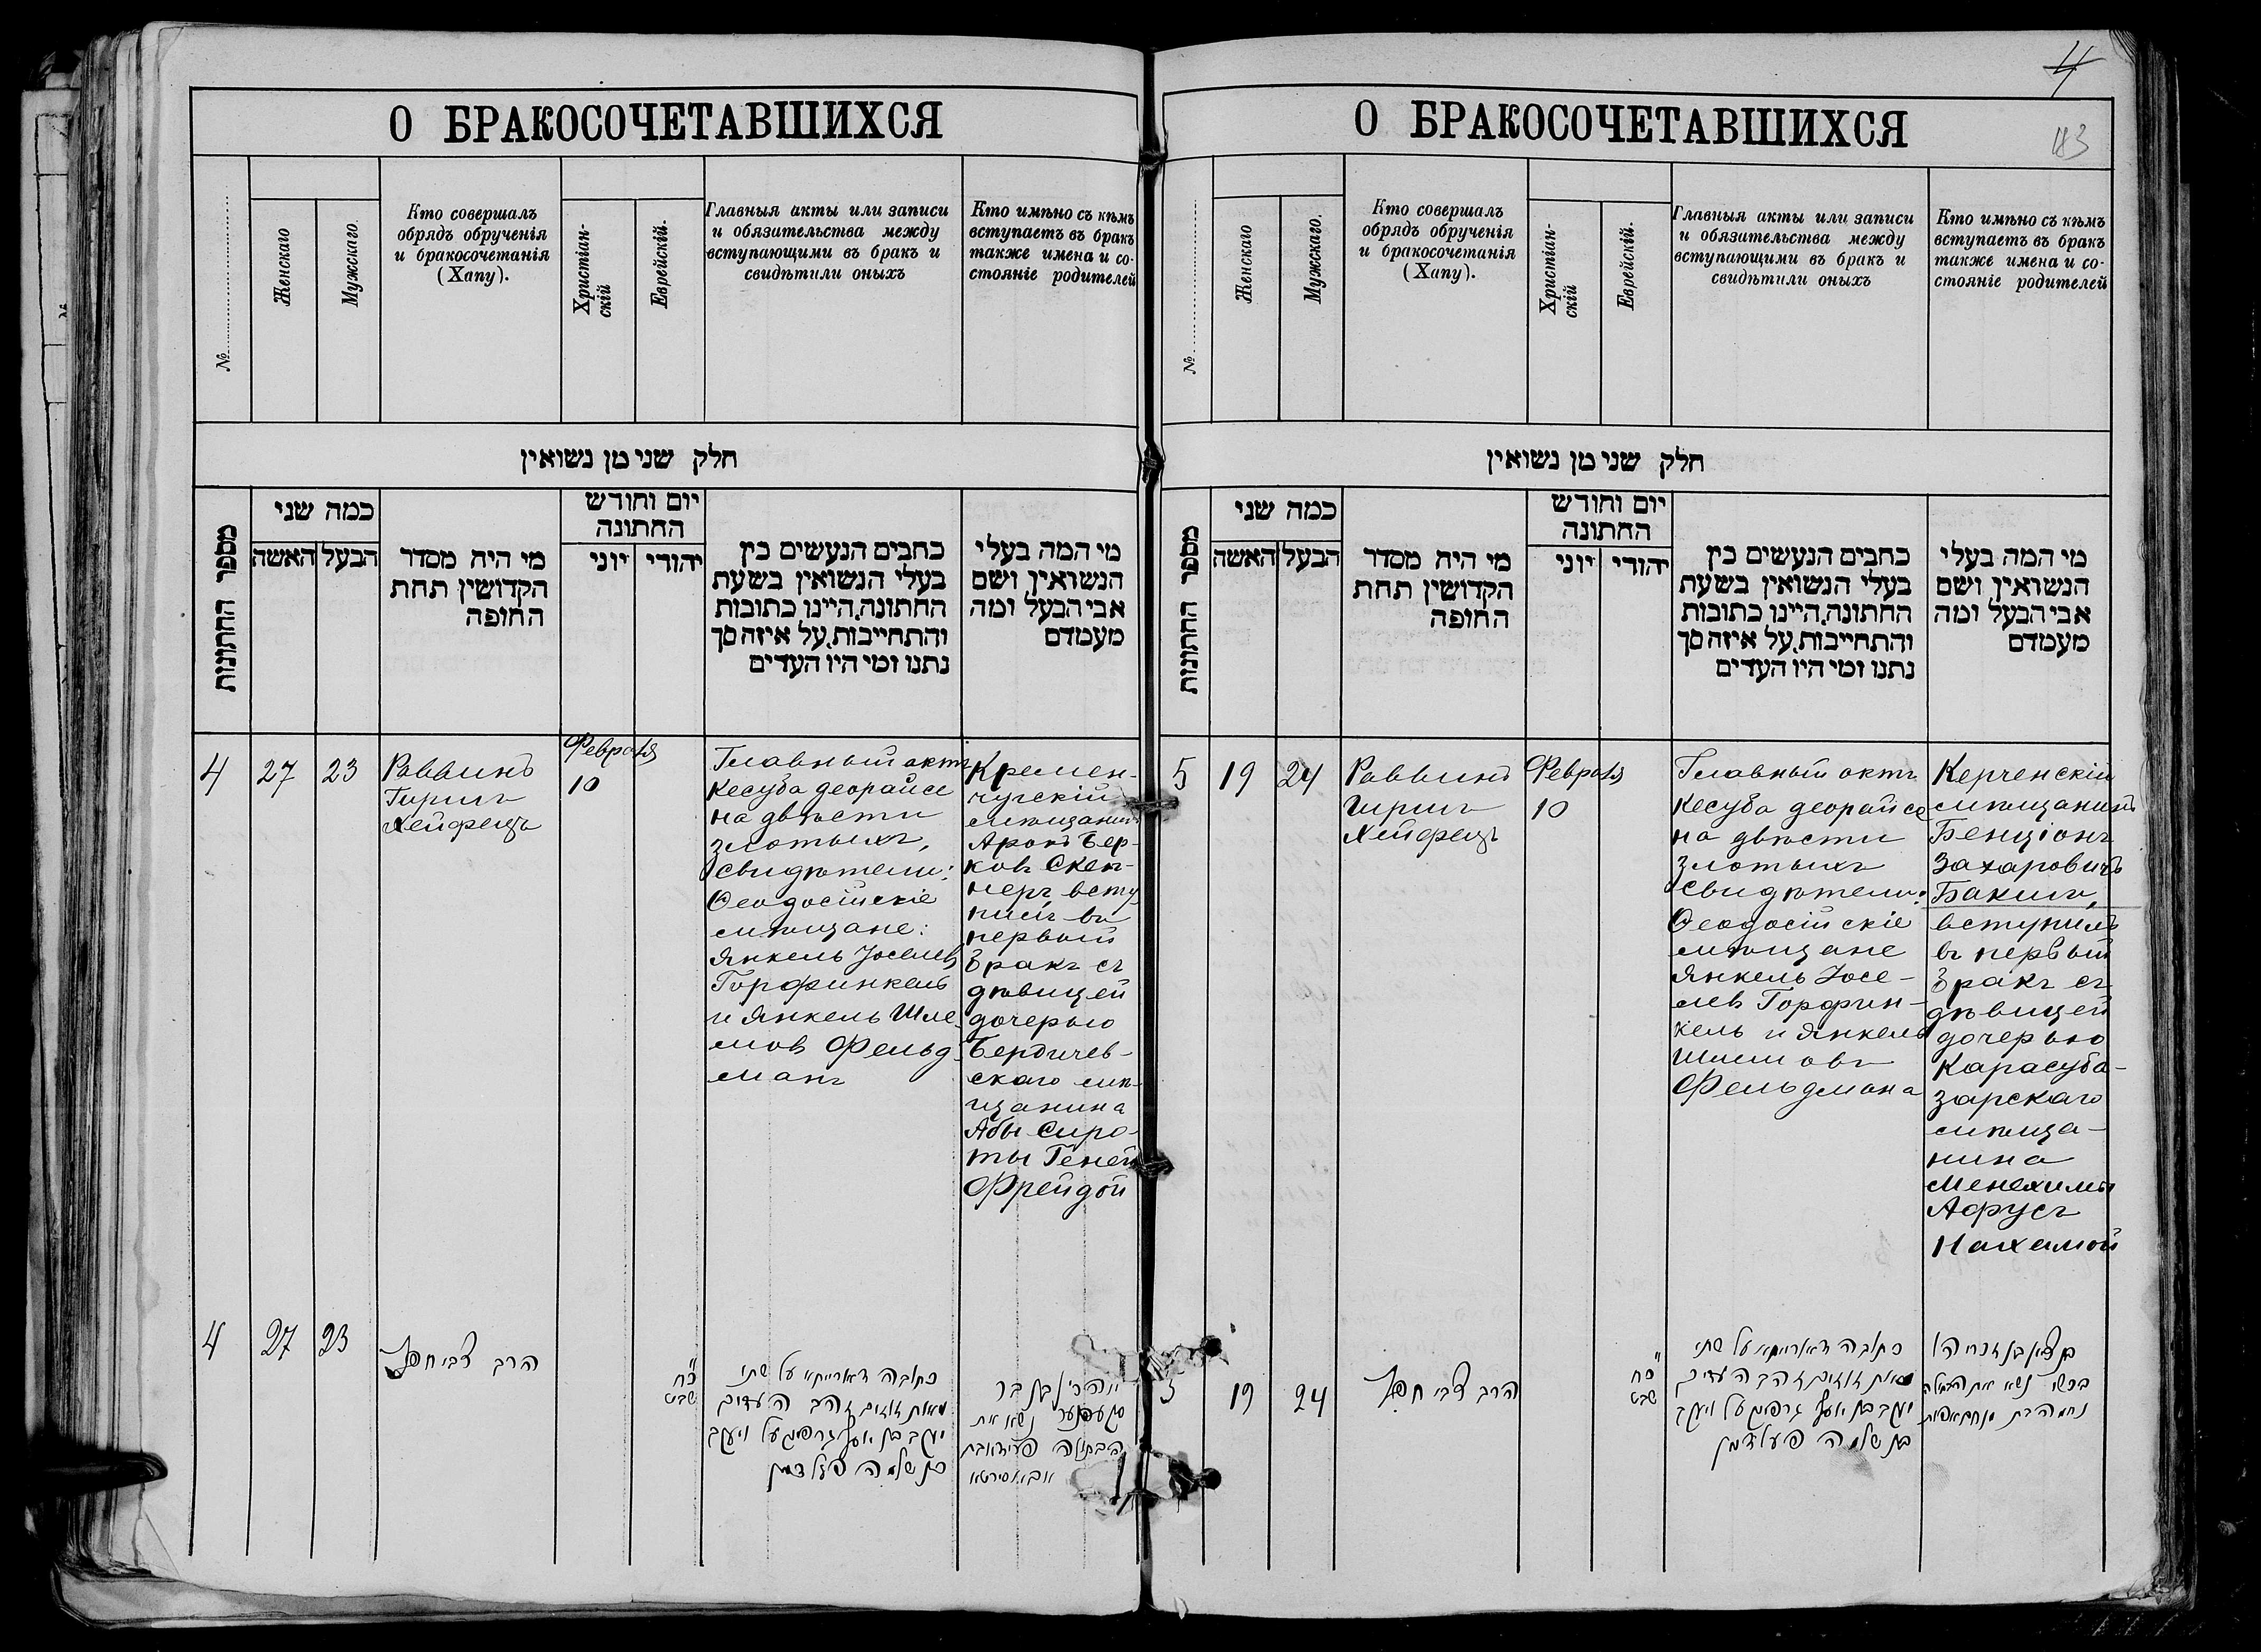 4
О БРАКОСОЧЕТАВШИХСЯ
№
Женскаго
Мужскаго
Кто совершалъ
обрядъ обрученія
и бракосочетанія
(Хапу).
Христіан-
скій
Еврейскій.
Главныя акты или записи
и обязательства между
вступающими въ бракъ и
свидѣтили оныхъ
Кто имѣно съ кѣмъ
вступаетъ въ бракъ
также имена и со-
стояніе родителей
חלק שני מן נשואין
מספר החתונות
כמה שני
האשה
הבעל
מי היה מסדר
הקדושין תחת
החופה
יום וחודש
החתונה
יוני
יהודי
כתבים הנעשים בין
בעלי הנשואין בשעת
החתונה, היינו כתובות
והתחייבות, על איזה סך
נתנו ומי היו העדים
מי המה בעלי
הנשואין ושם
אבי הבעל ומה
מעמדם
4
27
23
Раввинъ
Гиршъ
Хейфецъ
Февраля
10
Главный актъ
кесуба деорайсе
на двѣсти
злотыхъ,
свидѣтели:
Ѳеодосійскіе
мѣщане:
Янкель Іоселев
Горфинкель
и Янкель Шле-
мов Фельд-
манъ
Кремен-
чугскій
мѣщанинъ
Аронъ Бер-
ковъ Скеп-
неръ, всту
пилъ въ
первый
бракъ съ
дѣвицей
дочерью
Бердичев-
скаго мѣ-
щанина
Абы Сиро-
ты Геней
Фрейдой
4
27
23
הרב צבי חפץ
כ״ח
שבט
כתובה דאורייתא על שתי
מאות זוזים זהב העדים
יעקב בן יוסף גרפינקעל ויעקב
בן שלמה פעלדמן
נשא את
הבתולה
אבא סיראטא
О БРАКОСОЧЕТАВШИХСЯ
43
№
Женскаго
Мужскаго.
Кто совершалъ
обрядъ обрученія
и бракосочетанія
(Хапу).
Христіан-
скій
Еврейскій.
Главныя акты или записи
и обязательства между
вступающими въ бракъ и
свидѣтили оныхъ
Кто имѣно съ кѣмъ
вступаетъ въ бракъ
также имена и со-
стояніе родителей
חלק שני מן נשואין
מספר החתונות
כמה שני
האשה
הבעל
מי היה מסדר
הקדושין תחת
החופה
יום וחודש
החתונה
יוני
יהודי
כתבים הנעשים בין
בעלי הנשואין בשעת
החתונה, היינו כתובות
והתחייבות, על איזה סך
נתנו ומי היו העדים
מי המה בעלי
הנשואין ושם
אבי הבעל ומה
מעמדם
5
19
24
Раввинъ
Гиршъ
Хейфецъ
Февраля
10
Главный актъ
кесуба деорайсе
на двѣсти
злотыхъ
свидѣтели:
Ѳеодосійскіе
мѣщане
Янкель Іосе-
лев Горфин-
кель и Янкель
Шлемовъ
Фельдмана
Керченскій
мѣщанинъ
Бенціонъ
Захаровичъ
Бакши,
вступилъ
въ первый
бракъ съ
дѣвицей
дочерью
Карасуба-
зарскаго
мѣща-
нина
Менехима
Афусъ
Нахамой
5
19
24
הרב צבי חפץ
כ״ח
שבט
כתובה דאורייתא על שתי
מאות זוזים זהב העדים
יעקב בן יוסף גרפינקעל ויעקב
בן שלמה פעלדמן
בן ציון בן זכריהו
בכשי נשא את הבתולה
נחמה בת מנחם אפוס